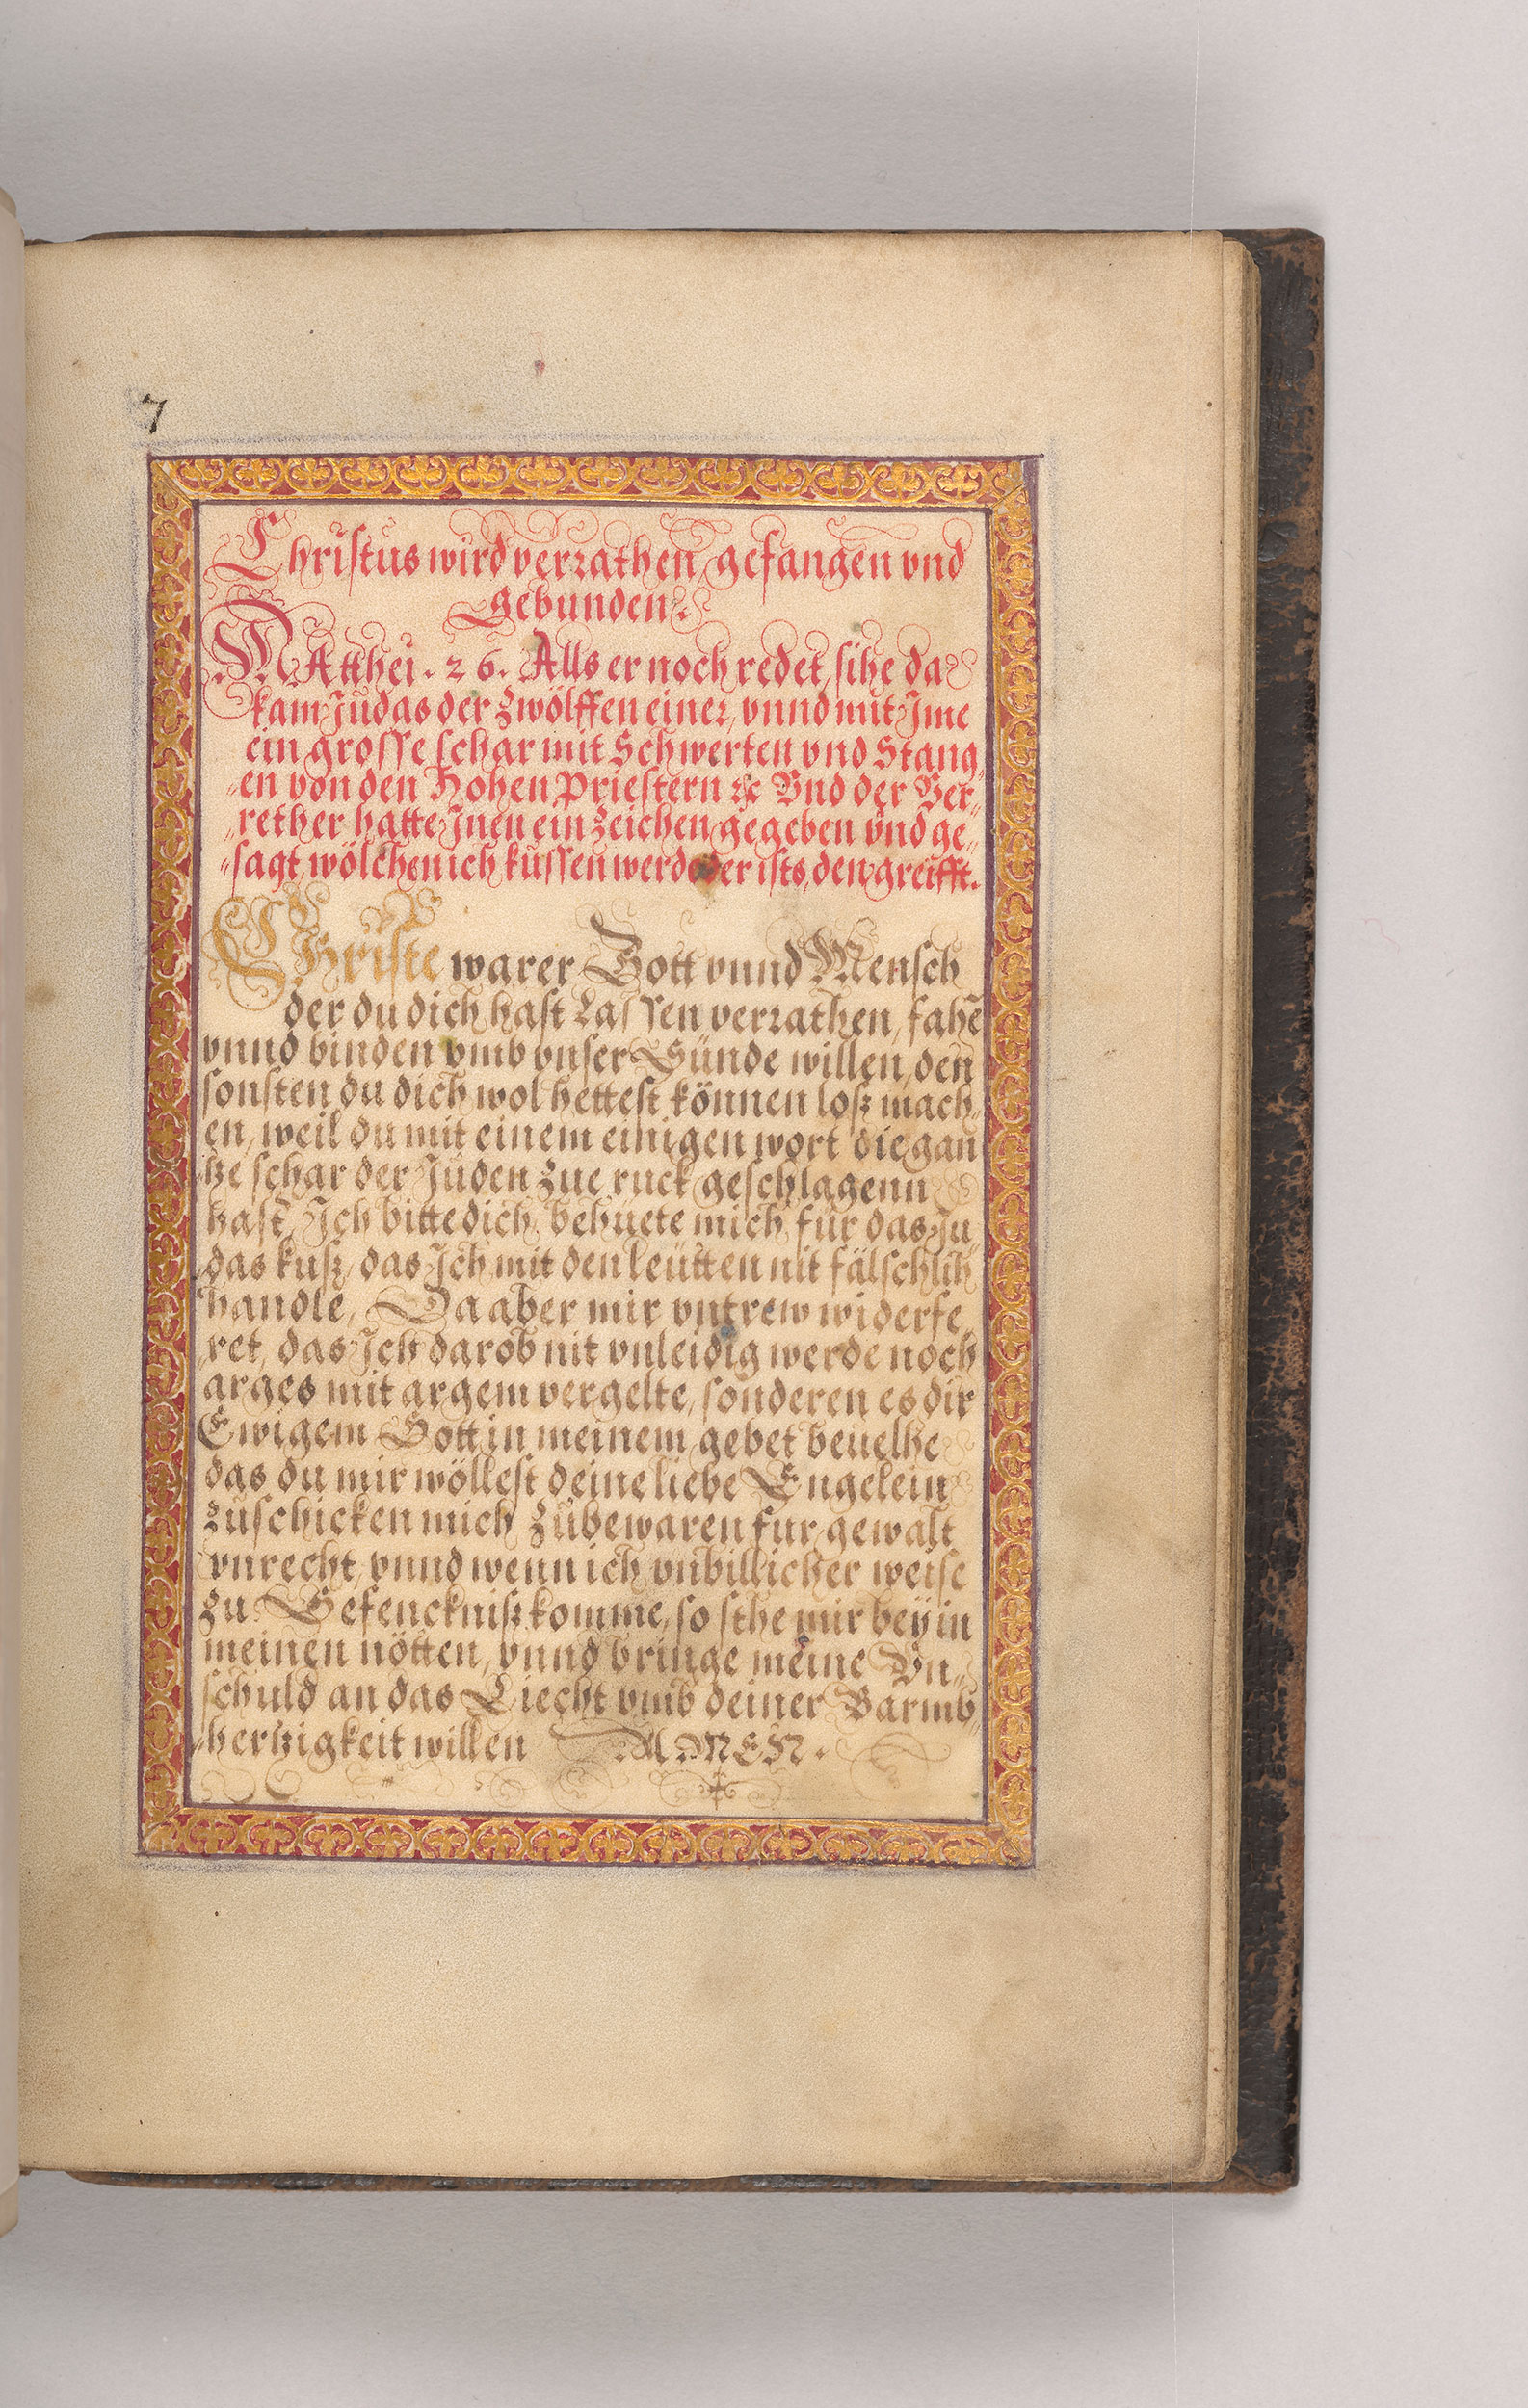 7
Christus wird verrathen, gefangen vnd
gebunden.
MAtthei . 26. Alls er noch redet, sihe da
kam Judas der Zwölffen einer, vnnd mit Ime
ein grosse schar mit Schwerten vnd Stang„
„en von den Hohen Priestern ꝛc Vnd der Ver„
„rether hatte Inen ein Zeichen gegeben vnd ge„
„sagt, wölchen ich kussen werde der ists, den greifft.
CHriste warer Gott vnnd Mensch
der du dich hast Lassen verrathen, fahē
vnnd binden vmb vnser Sünde willen, den
sonsten du dich wol hettest können losz mach„
en, weil du mit einem einigen wort die gan
tze schar der Juden Zue ruck geschlagenn
hast, Ich bitte dich, behuete mich für das Ju„
„das kusz, das Ich mit den leütten nit fälschlich
handle, Da aber mir vntrew widerfe„
„ret, das Ich darob nit vnleidig werde noch
arges mit argem vergelte, sonderen es dir
Ewigem Gott in meinem gebet beuelhe
das du mir wöllest deine liebe Engelein
zuschicken mich Zubewaren fur gewalt
vnrecht, vnnd wenn ich vnbillicher weise
Zu Gefencknisz komme, so sthe mir bey in
meinen nötten, vnnd bringe meine Vn„
schuld an das Liecht vmb deiner Barmb„
„hertzigkeit willen AMEN.